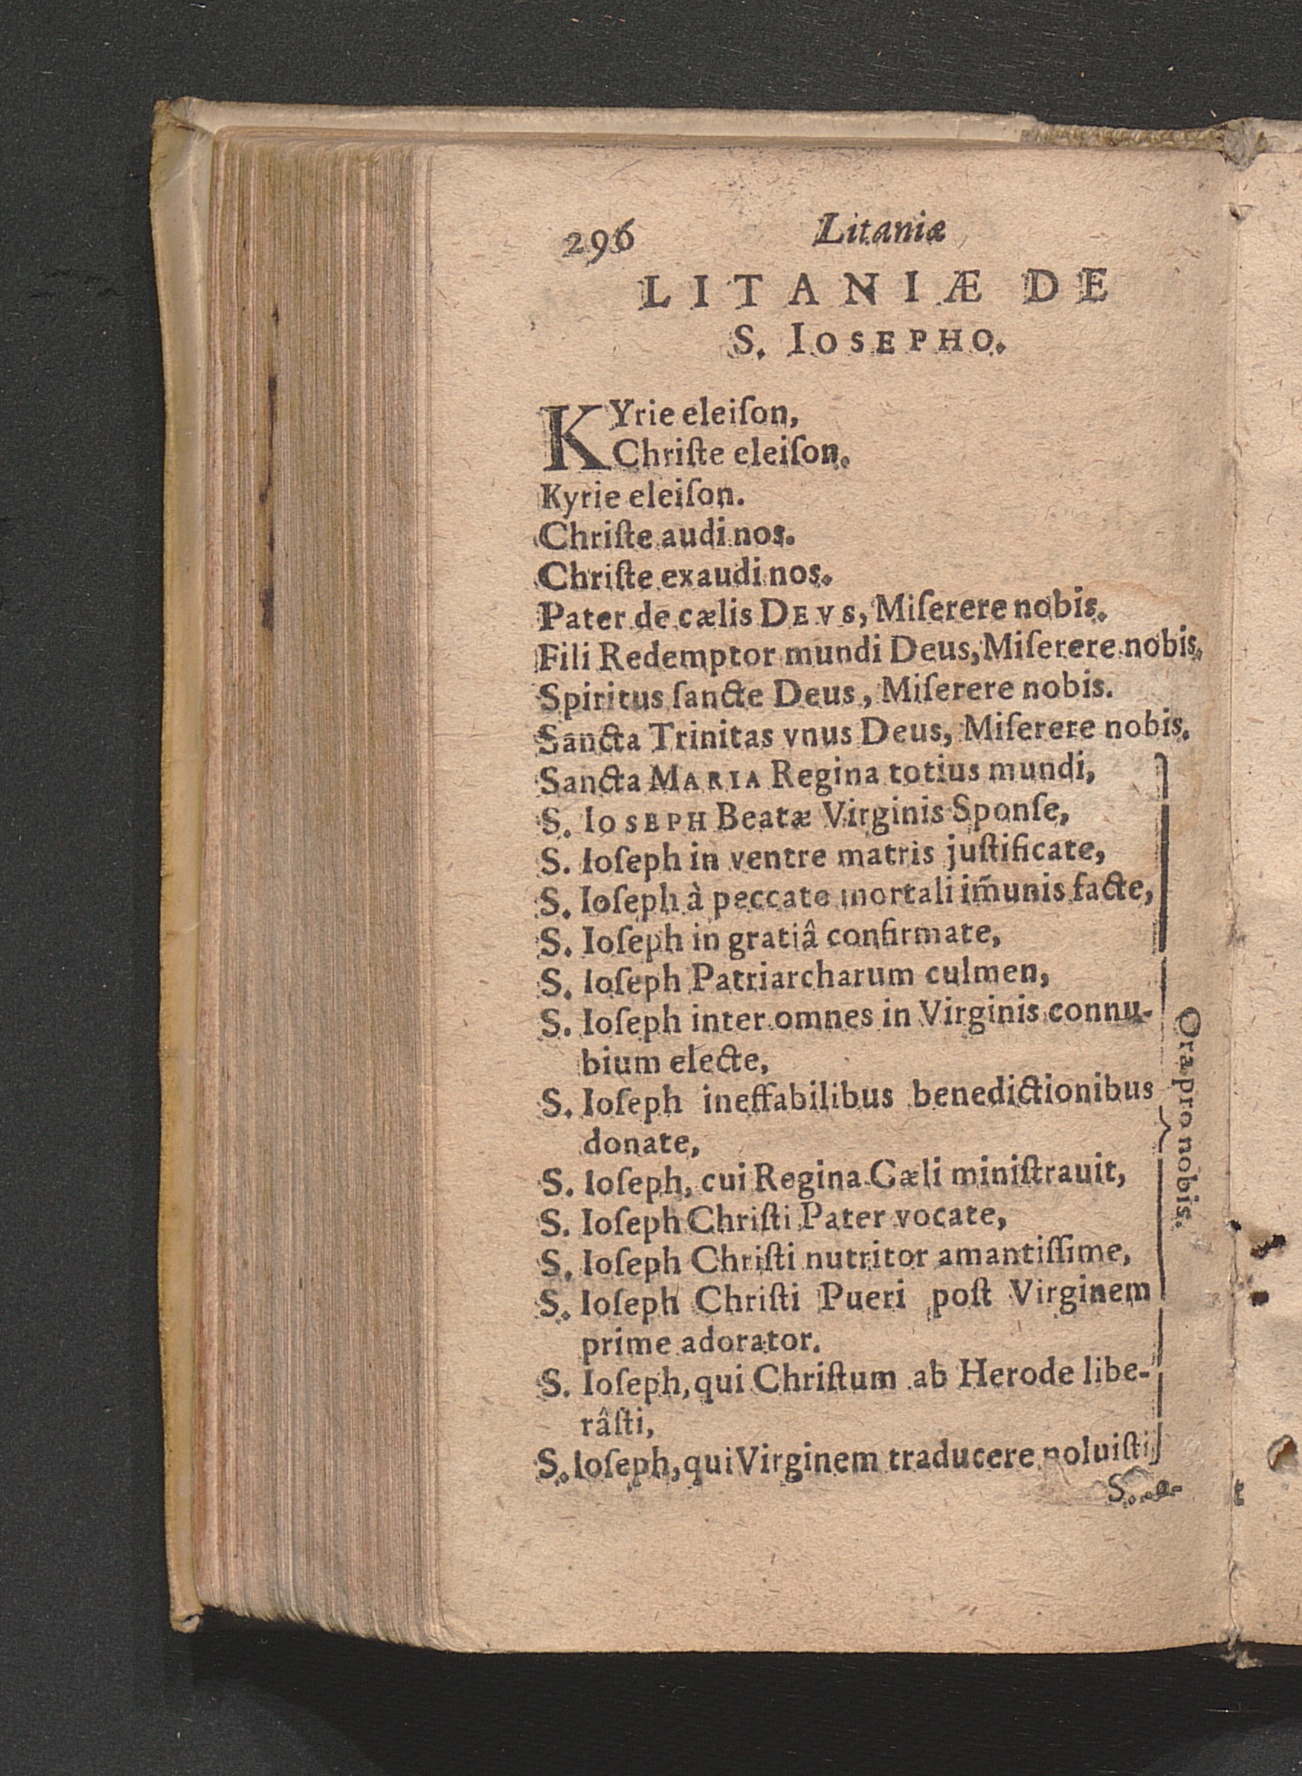 296 Litaniæ
LITANIÆ DE
S. IOSEPHO.
KYrie eleiſon,
Chriſte eleiſon.
Kyrie eleiſon.
Chriſte audi nos.
Chriſte exaudi nos.
Pater de cælis DEVS, Miſerere nobis.
Fili Redemptor mundi Deus, Miſerere nobis.
Spiritus ſancte Deus, Miſerere nobis.
Sancta Trinitas vnus Deus, Miſerere nobis.
Sancta MARIA Regina totius mundi,
S. IOSEPH Beatæ Virginis Sponſe,
S. Ioſeph in ventre matris juſtificate,
S. Ioſeph à peccato mortali im̃unis facte,
S. Ioſeph in gratiâ confirmate,
S. Ioſeph Patriarcharum culmen,
S. Ioſeph inter omnes in Virginis connu-
bium electe,
S. Ioſeph ineffabilibus benedictionibus
donate,
S. Ioſeph, cui Regina Cæli miniſtrauit,
S. Ioſeph Chriſti Pater vocate,
S. Ioſeph Chriſti nutritor amantiſſime,
S. Ioſeph Chriſti Pueri poſt Virginem
prime adorator.
S. Ioſeph, qui Chriſtum ab Herode libe-
râſti,
S. Ioſeph, qui Virginem traducere noluiſti
Ora pro nobis.
S.